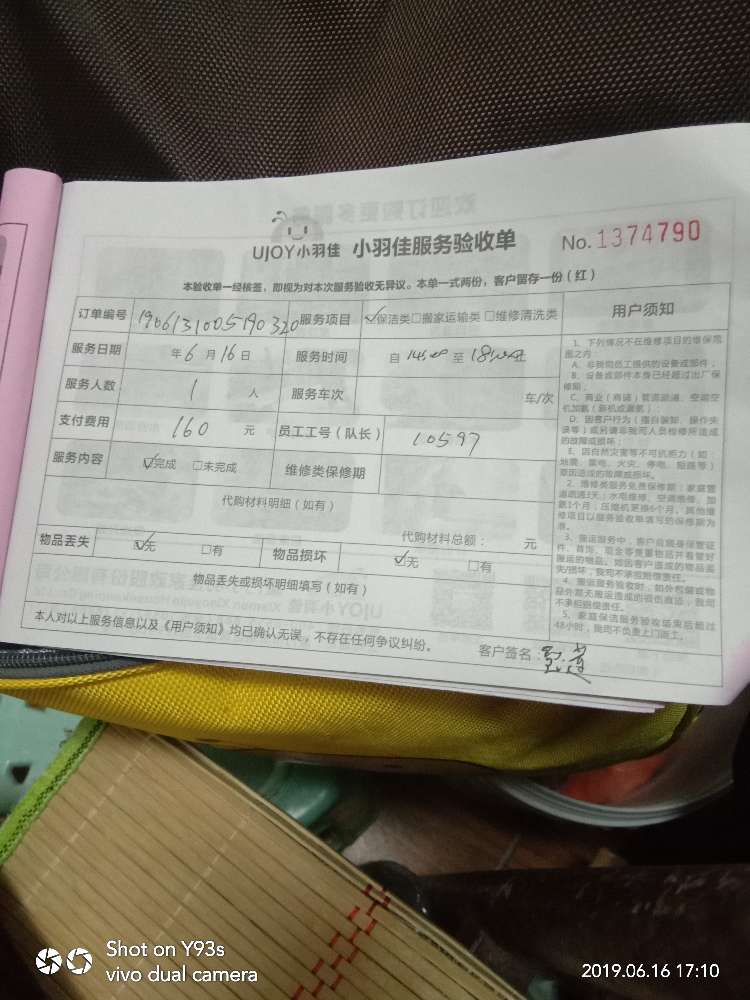 UJOY小羽佳 小羽佳服务验收单 No.1374790
本验收单一经核签,即视为对本次服务验收无异议。本单一式两份,客户留存一份(红)
订单编号 1906131005190320 服务项目 ☑保洁类□搬家运输类□维修清洗类
服务日期 年6月16日 服务时间 自14:00至18:00
服务人数 1 人 服务车次 车/次
支付费用 160 元 员工工号(队长) 10597
服务内容 ☑完成 □未完成 维修类保修期
代购材料明细(如有)
代购材料总额: 元
物品丢失 ☑无 □有 物品损坏 ☑无 □有
物品丢失或损坏明细填写(如有)
本人对以上服务信息以及《用户须知》均已确认无误,不存在任何争议纠纷。 客户签名:
用户须知
1、下列情况不在维修项目的维保范
围之内:
A、非我司员工提供的设备或部件;
B、设备或部件本身已经超过出厂保
修期;
C、商业(商铺)管道疏通、空调空
机加氨(装机或漏氨);
D、因客户行为(擅自装卸、操作失
误等)或另请非我司人员检修所造成
的故障或损坏;
E、因自然灾害等不可抗拒力(如:
地震、雷电、火灾、停电、短路等)
原因造成的故障或损坏。
2、维修类服务免费保修期:家庭管
道疏通3天;水电维修、空调维修、加
氨1个月;压缩机更换6个月。其他维
修项目以服务验收单填写的保修期为
准。
3、搬运服务中,客户应随身保管证
件、首饰、现金等贵重物品并看管好
搬运的物品。如因客户造成的物品丢
失/损坏,我司不承担赔偿责任。
4、搬运服务验收时,如外包装或物
品外观无搬运造成的损伤痕迹,我司
不承担赔偿责任。
5、家庭保洁服务验收结束后超过
48小时,我司不负责上门返工。
Shot on Y93s
vivo dual camera
2019.06.16 17:10